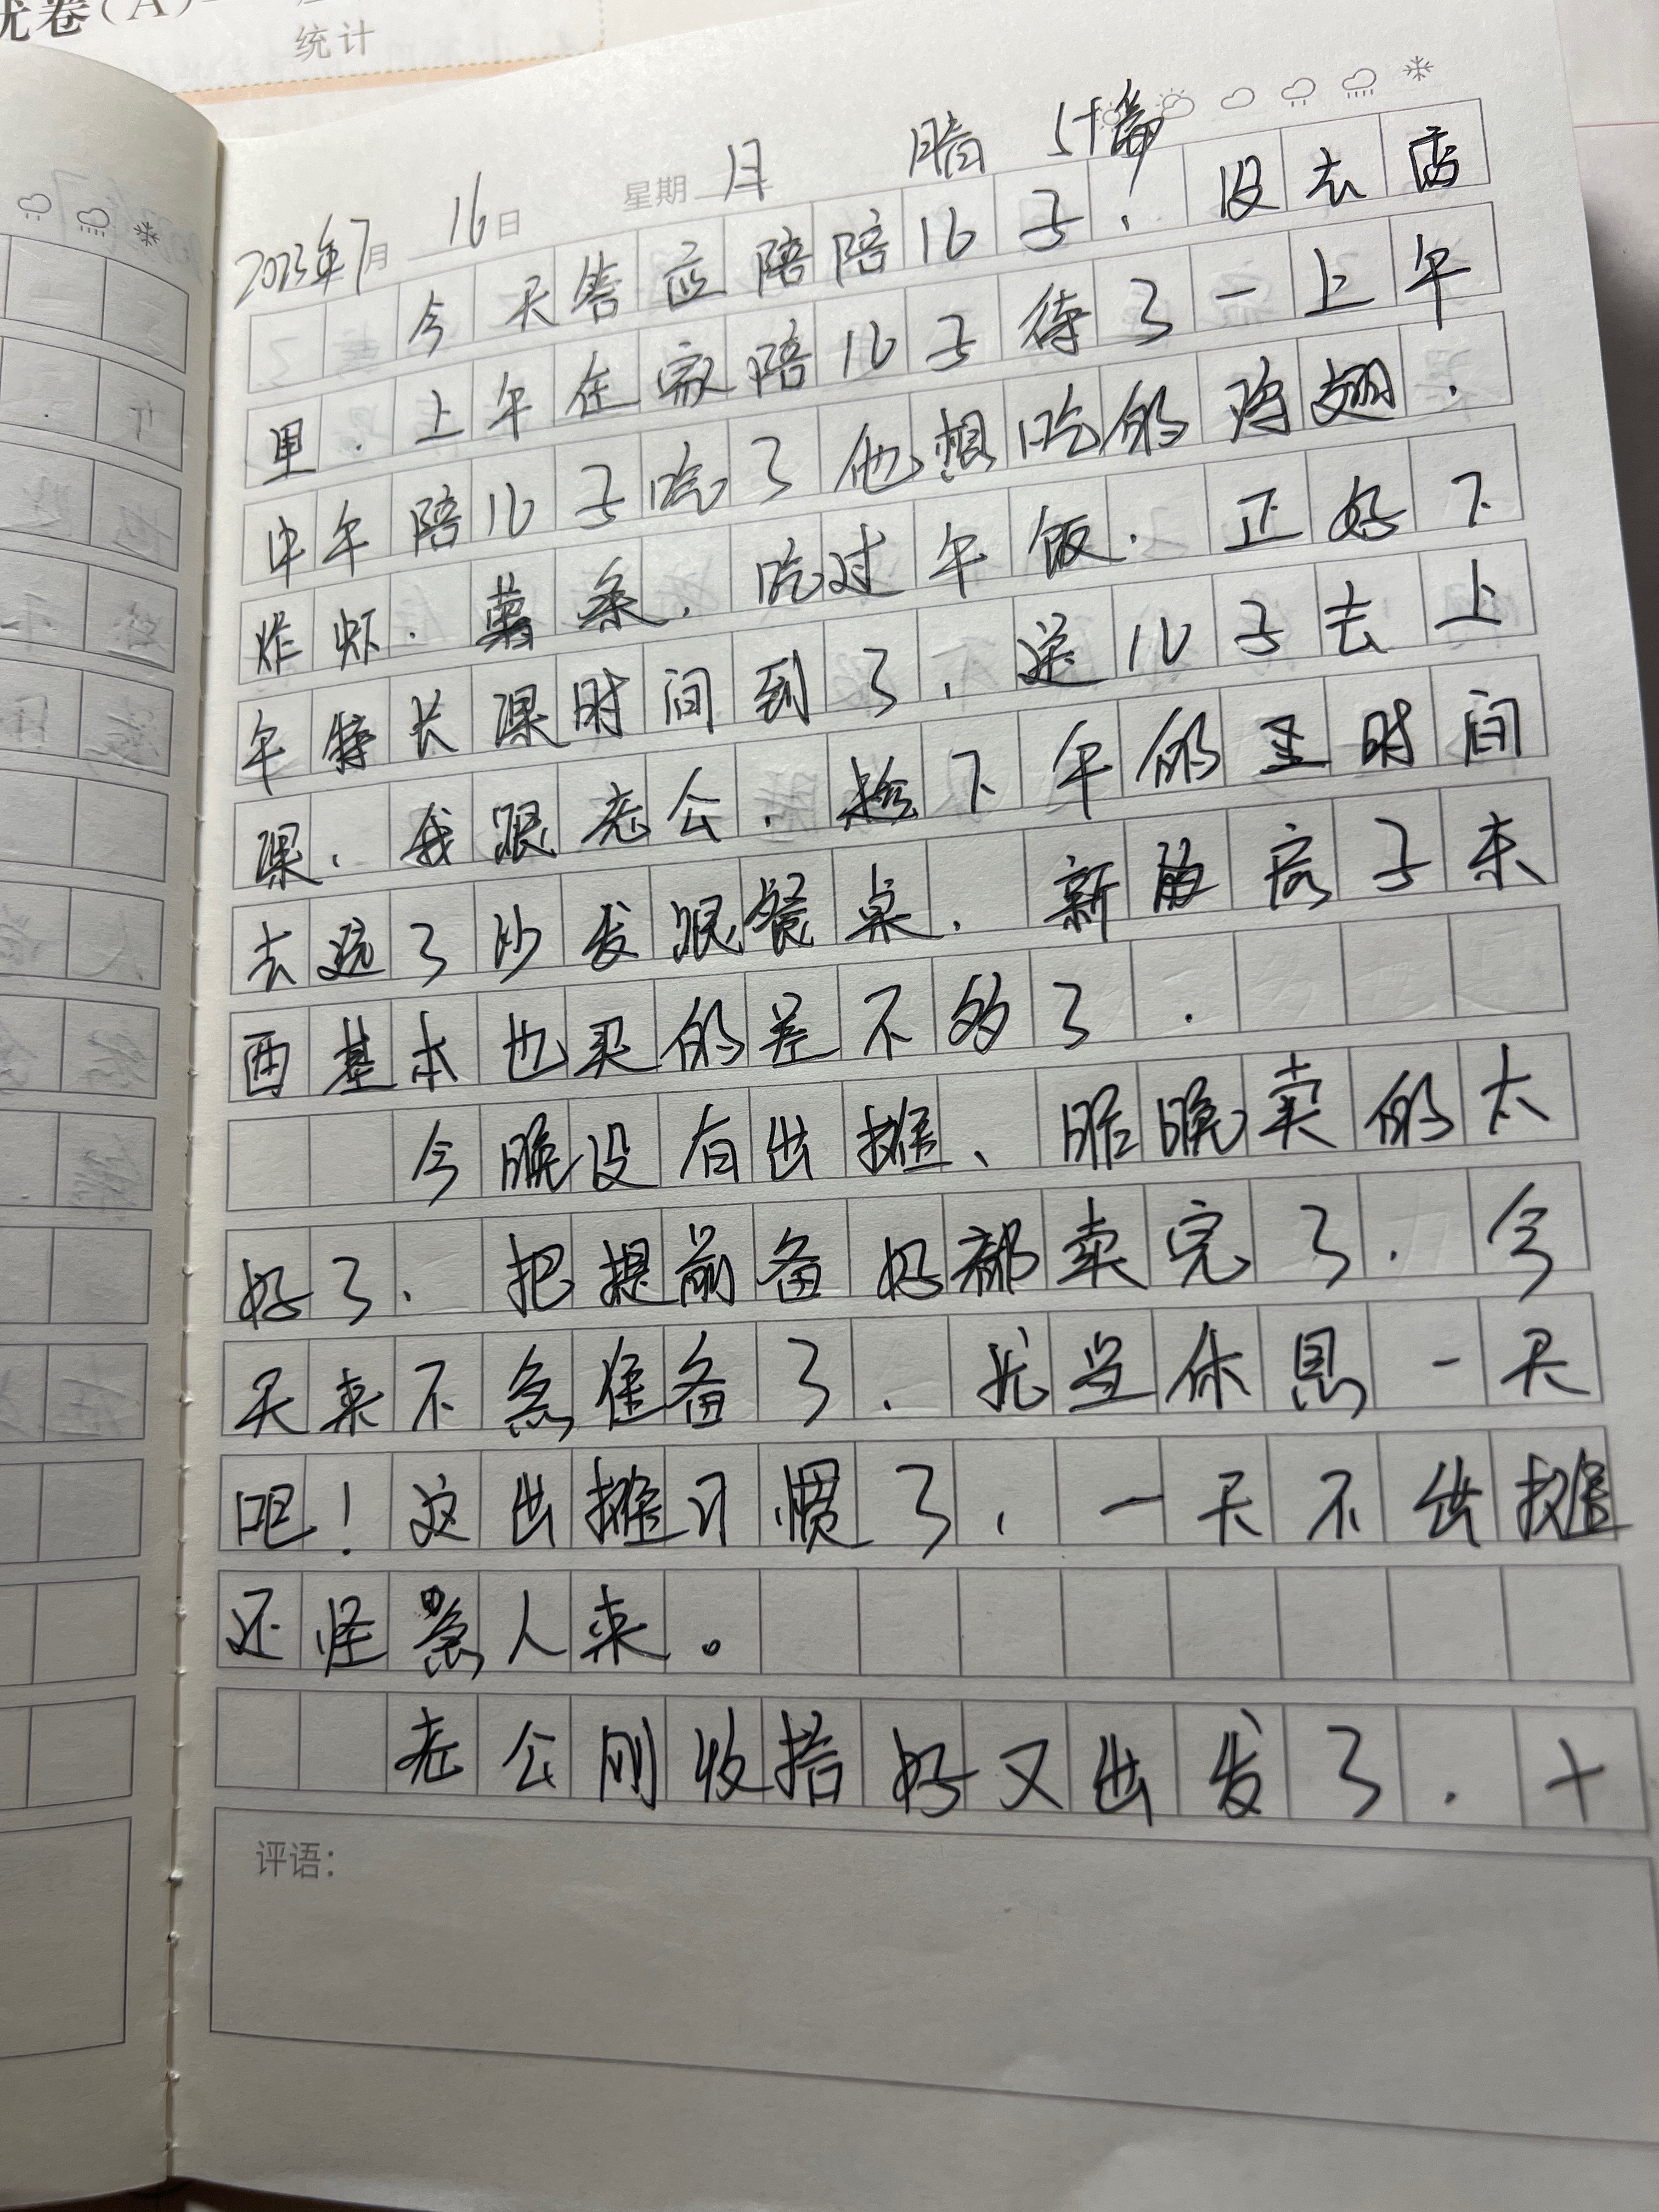 卷(A)
统计
2023年7月 16日 星期 日 晴 54篇
今天答应陪陪儿子,没去店
里.上午在家陪儿子待了一上午
中午陪儿子吃了他想吃的鸡翅.
炸虾.薯条.吃过午饭.正好下
午特长课时间到了,送儿子去上
课,我跟老公.趁下午的空时间
去逛了沙发跟餐桌.新的房子东
西基本也买的差不多了.
今晚没有出摊、昨晚卖的太
好了.把提前备好都卖完了.今
天来不急准备了.就当休息一天
吧!这出摊习惯了,一天不出摊
还怪急人来。
老公刚收拾好又出发了.十
评语: